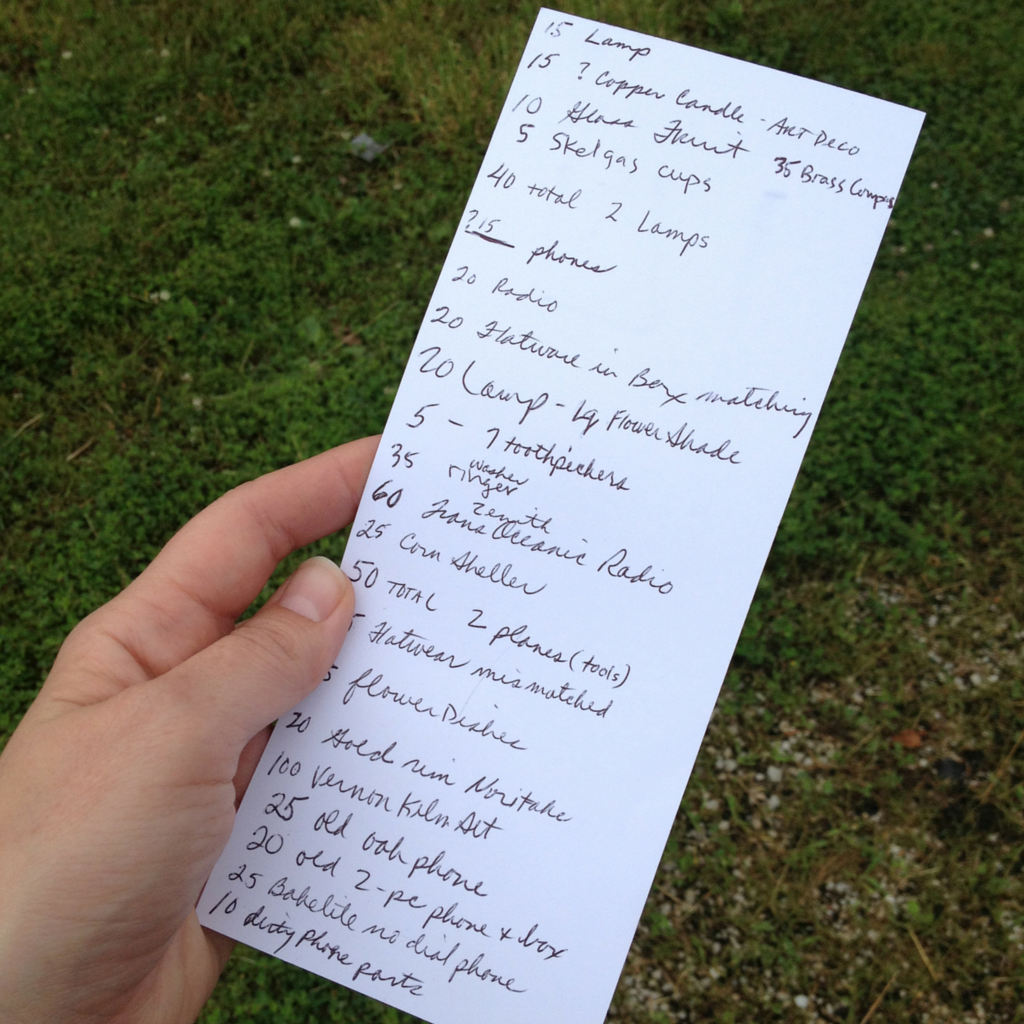 15 Lamp
15 ? Copper Candle - Art Deco
10 Glass Fruit
35 Brass Compass
5 Skelgas cups
40 total 2 Lamps
? 15 phones
20 Radio
20 Flatware in Box matching
20 Lamp - Lg Flower Shade
5 - 7 toothpickers
35 washer
ringer
Zenith
60 Trans Oceanic Radio
25 Corn Sheller
50 TOTAL 2 planes (tools)
5 Flatwear mismatched
5 flower Dishes
20 Gold rim Noritake
100 Vernon Kiln Set
25 old oak phone
20 old 2-pc phone + box
25 Bakelite no dial phone
10 dirty phone parts